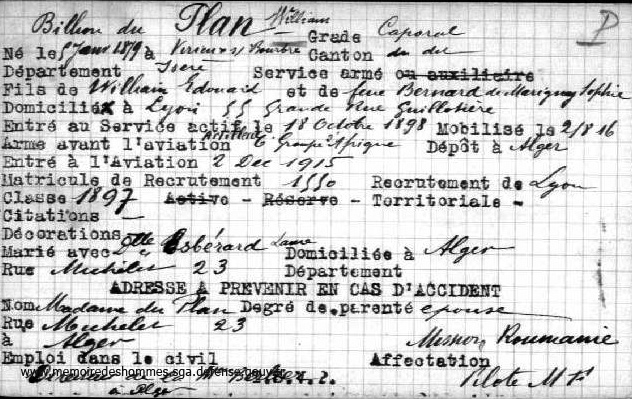 Billion du Plan William
Grade Caporal P
Né le 5 Janv 1879 à Virieu s/ Bourbre Canton du du
Département Isère Service armé ou auxiliaire
Fils de William Edouard et de feue Bernard de Marigny Sophie
Domicilié à Lyon 55 Grande Rue Guillotière
Entré au Service actif le 18 Octobre 1898 Mobilisé le 2/8 16
Arme avant l'aviation Artillerie 6 groupe Afrique Dépôt à Alger
Entré à l'Aviation 2 Dec 1915
Matricule de Recrutement 1550 Recrutement de Lyon
Classe 1897 Active - Réserve - Territoriale -
Citations —
Décorations
Marié avec Dlle Esbérard Laure Domiciliée à Alger
Rue Michelet 23 Département
ADRESSE A PREVENIR EN CAS D'ACCIDENT
Nom Madame du Plan Degré de parenté épouse
Rue Michelet 23
à Alger Mission Roumanie
Emploi dans le civil Affectation
www.memoiredeshommes.sga.defense.gouv.fr
de la
à Alger Pilote M F